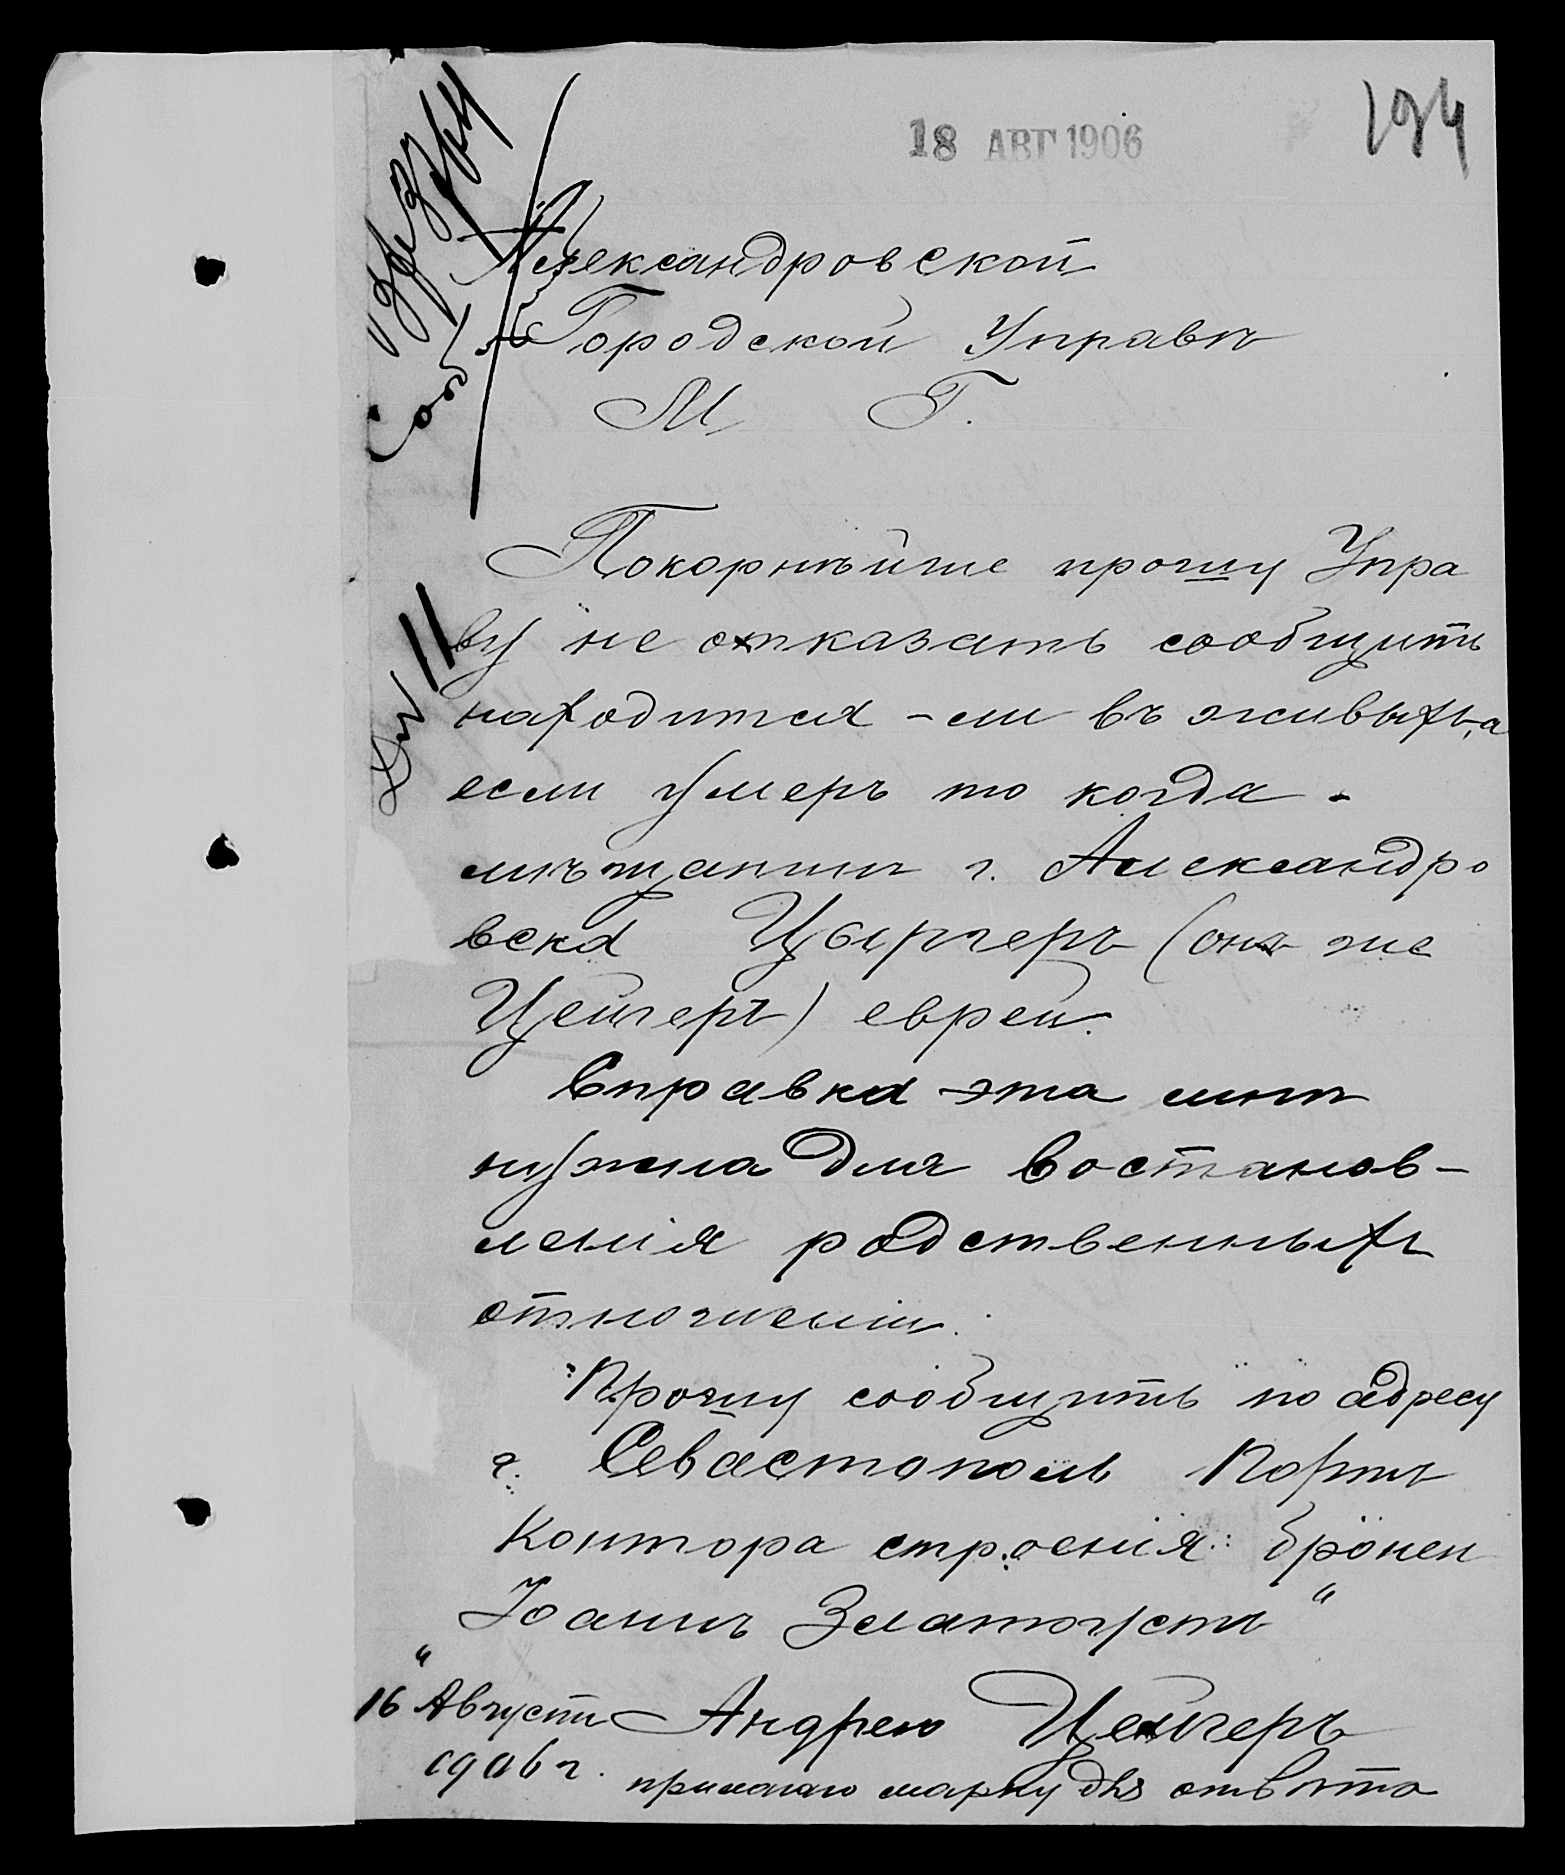 18 АВГ 1906
194
Александровской
Городской Управѣ
М. Г.
Покорнѣйше прошу Упра
ву не отказать сообщить
находится-ли въ живыхъ, а
если умеръ то когда -
мѣщанинъ г. Александро
вска Цыргеръ (онъ же
Цейгеръ) еврей.
Справка эта мнѣ
нужна для востанов-
ленія родственныхъ
отношеній.
Прошу сообщить по адресу
г. Севастополь Портъ
Контора строенія бронен
Іоаннъ Златоустъ"
"16 Августа Андрею Цейгеръ
1906 г. прилагаю марку для отвѣта